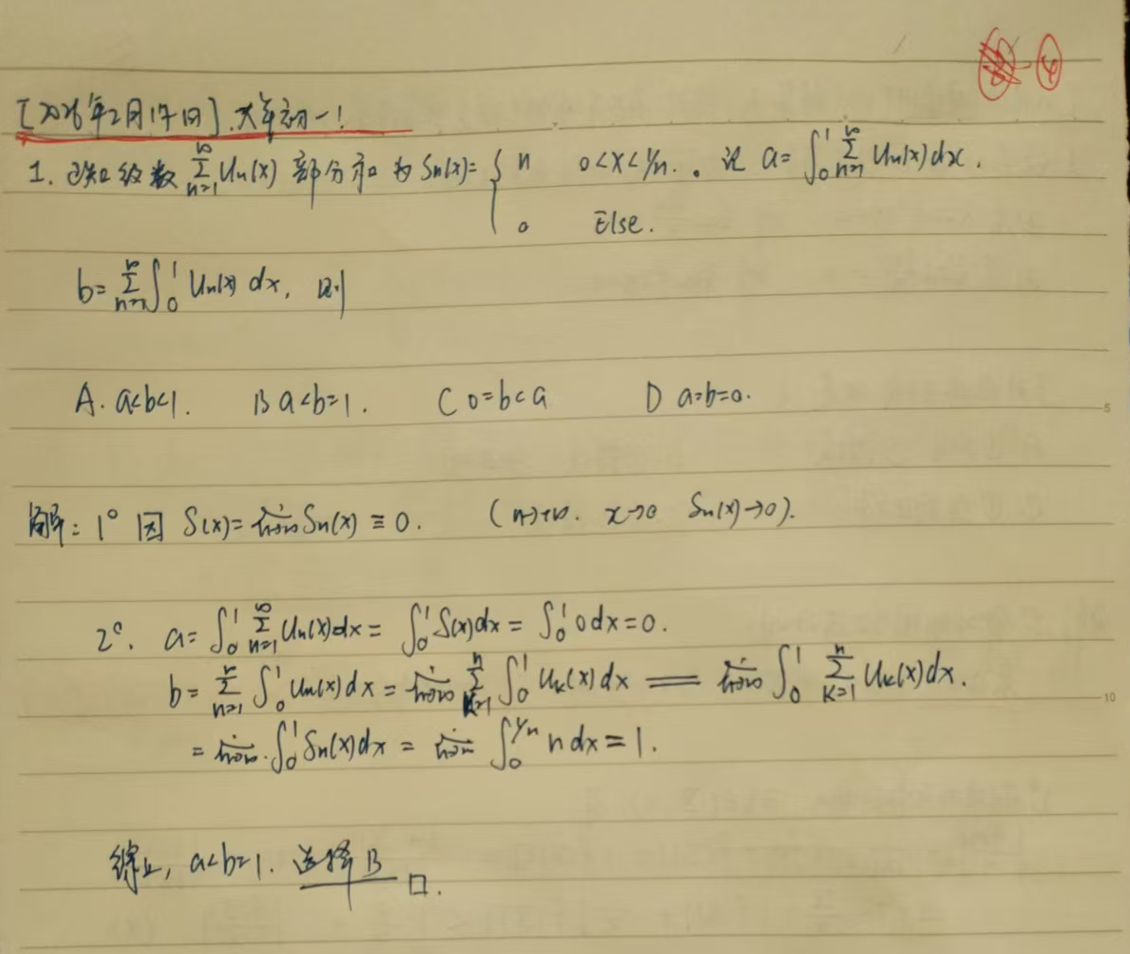 [2026年2月17日].大年初一!
1. 已知级数 ∑_{n=1}^∞ Un(x) 部分和为 Sn(x)= { n 0<x<1/n. 。记 a= ∫_0^1 ∑_{n=1}^∞ Un(x)dx.
0 Else.
b= ∑_{n=1}^∞ ∫_0^1 Un(x) dx, 则
A. a<b<1. B a<b=1. C 0=b<a D a=b=0.
解: 1° 因 S(x)= lim_{n→∞} Sn(x) ≡ 0. (n→+∞. x→0 Sn(x)→0).
2°. a= ∫_0^1 ∑_{n=1}^∞ Un(x)dx = ∫_0^1 S(x)dx = ∫_0^1 0dx=0.
b= ∑_{n=1}^∞ ∫_0^1 Un(x)dx = lim_{n→∞} ∑_{k=1}^n ∫_0^1 Uk(x)dx = lim_{n→∞} ∫_0^1 ∑_{k=1}^n Uk(x)dx.
= lim_{n→∞} ∫_0^1 Sn(x)dx = lim_{n→∞} ∫_0^{1/n} n dx = 1.
综上, a<b=1. 选择B □.
5
10